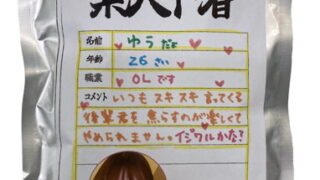 名前 ゆうだよ
年齢 26さい
職業 OLです
コメント いつもスキスキ言ってくる
後輩君を焦らすのが楽しくて
やめられません。イジワルかな?